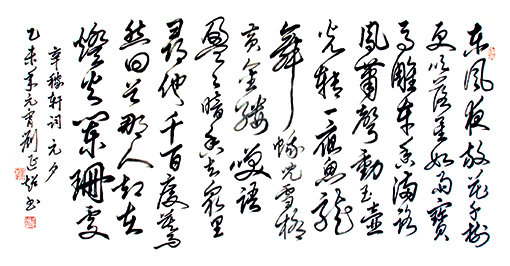 東風夜放花千樹
更吹落星如雨寶
馬雕車香滿路
鳳簫聲動玉壺
光轉一夜魚龍
舞蛾兒雪柳
黃金縷笑語
盈盈暗香去眾里
尋他千百度驀
然回首那人却在
燈火闌珊處
辛稼軒詞元夕
乙未年元宵劉延書